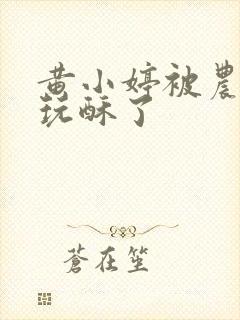 黄小婷被農
玩酥了
蒼在笙